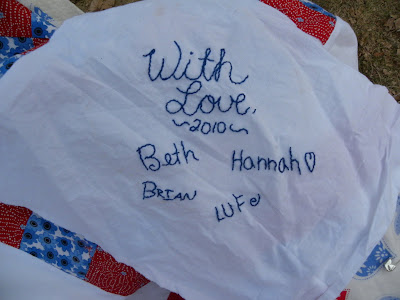 With
Love,
~2010~
Beth Hannah♡
BRIAN